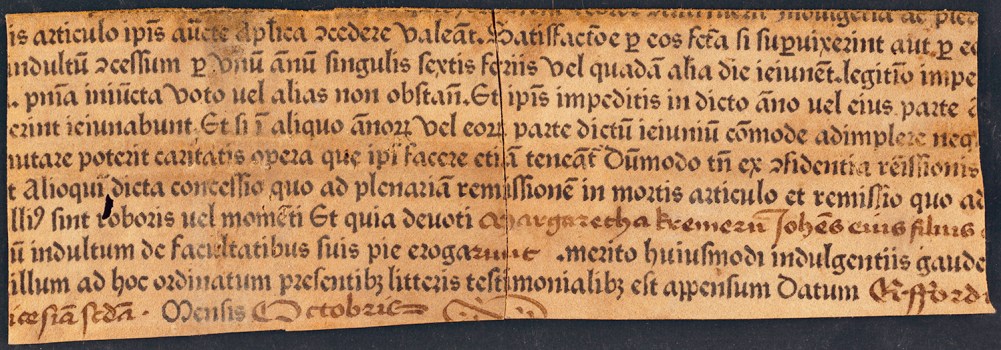 is articulo ip̄is aūcte ap̄lica ↄcedere valeāt. Satisfactōe ꝑ eos fc̄ta si suꝑuixerint aut ꝑ eo
indultū ↄcessum ꝑ vnū ānū singulis sextis feriis vel quadā alia die ieiunēt. legitīo impe
pn̄ia iniūcta voto uel alias non obstan̄. Et ip̄is impeditis in dicto āno uel eius parte
erint ieiunabunt Et si ī aliquo ānoꝝ vel eoꝝ parte dictū ieiuniū cōmode adimplere neq
mutare poterit caritatis opera que ip̄i facere etiā teneāt Dūmodo tn̄ ex ↄfidentia rēissionis
t Alioqui dicta concessio quo ad plenariā remissionē in mortis articulo et remissio quo ad
lliꝰ sint roboris uel momēti Et quia deuoti Margaretha kremerin̄ Johēs eius filius
ū indultum de facultatibus suis pie erogarunt .merito huiusmodi indulgentiis gaude
illum ad hoc ordinatum presentibꝫ litteris testimonialibꝫ est appensum Datum Erffordi
icesiā scd̄a. Mensis Octobris